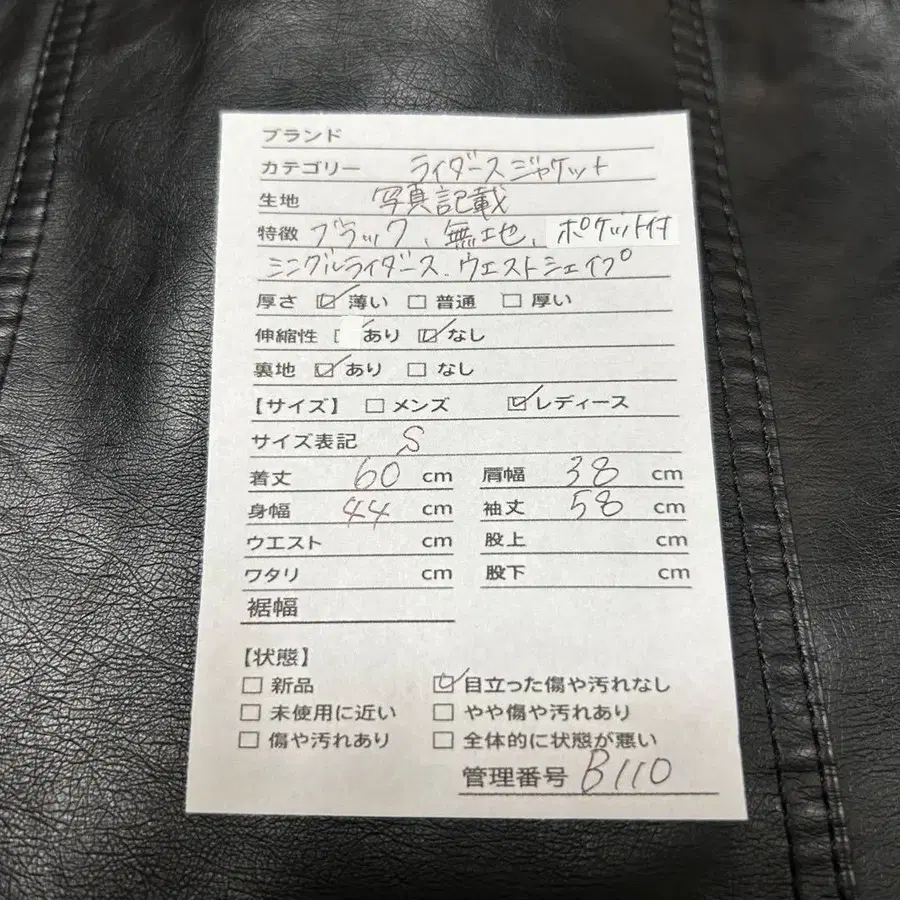 ブランド
カテゴリー ライダースジャケット
生地 写真記載
特徴 ブラック、無地、ポケット付
シングルライダース、ウエストシェイプ
厚さ ☑薄い □普通 □厚い
伸縮性 [ あり ☑なし
裏地 ☑あり □なし
【サイズ】 □メンズ ☑レディース
サイズ表記 S
着丈 60 cm 肩幅 38 cm
身幅 44 cm 袖丈 58 cm
ウエスト cm 股上 cm
ワタリ cm 股下 cm
裾幅
【状態】
□新品 ☑目立った傷や汚れなし
□未使用に近い □やや傷や汚れあり
□傷や汚れあり □全体的に状態が悪い
管理番号 B110